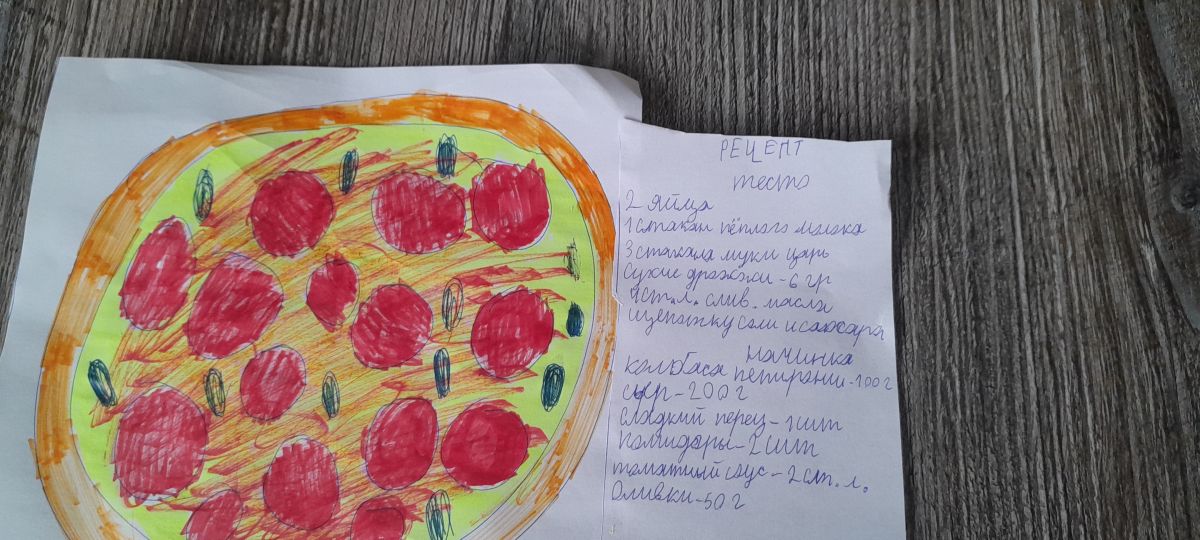 РЕЦЕПТ
тесто
2 яйца
1 стакан тёплого молока
3 стакала муки царь
сухие дрожжи - 6 гр
1 ст. л. слив. масла
щепотку соли и сахара
начинка
колбаса пепирони - 100 г
сыр - 200 г
сладкий перец - 1 шт
помидоры - 2 шт
томатный соус - 2 ст. л.
Оливки - 50 г